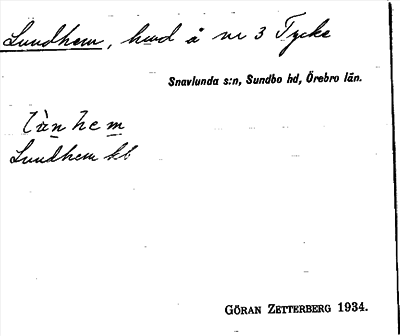 Lundhem, hmd å nr 3 Tycke
Snavlunda s:n, Sundbo hd, Örebro län.
lùn hem
Lundhem kb
GÖRAN ZETTERBERG 1934.